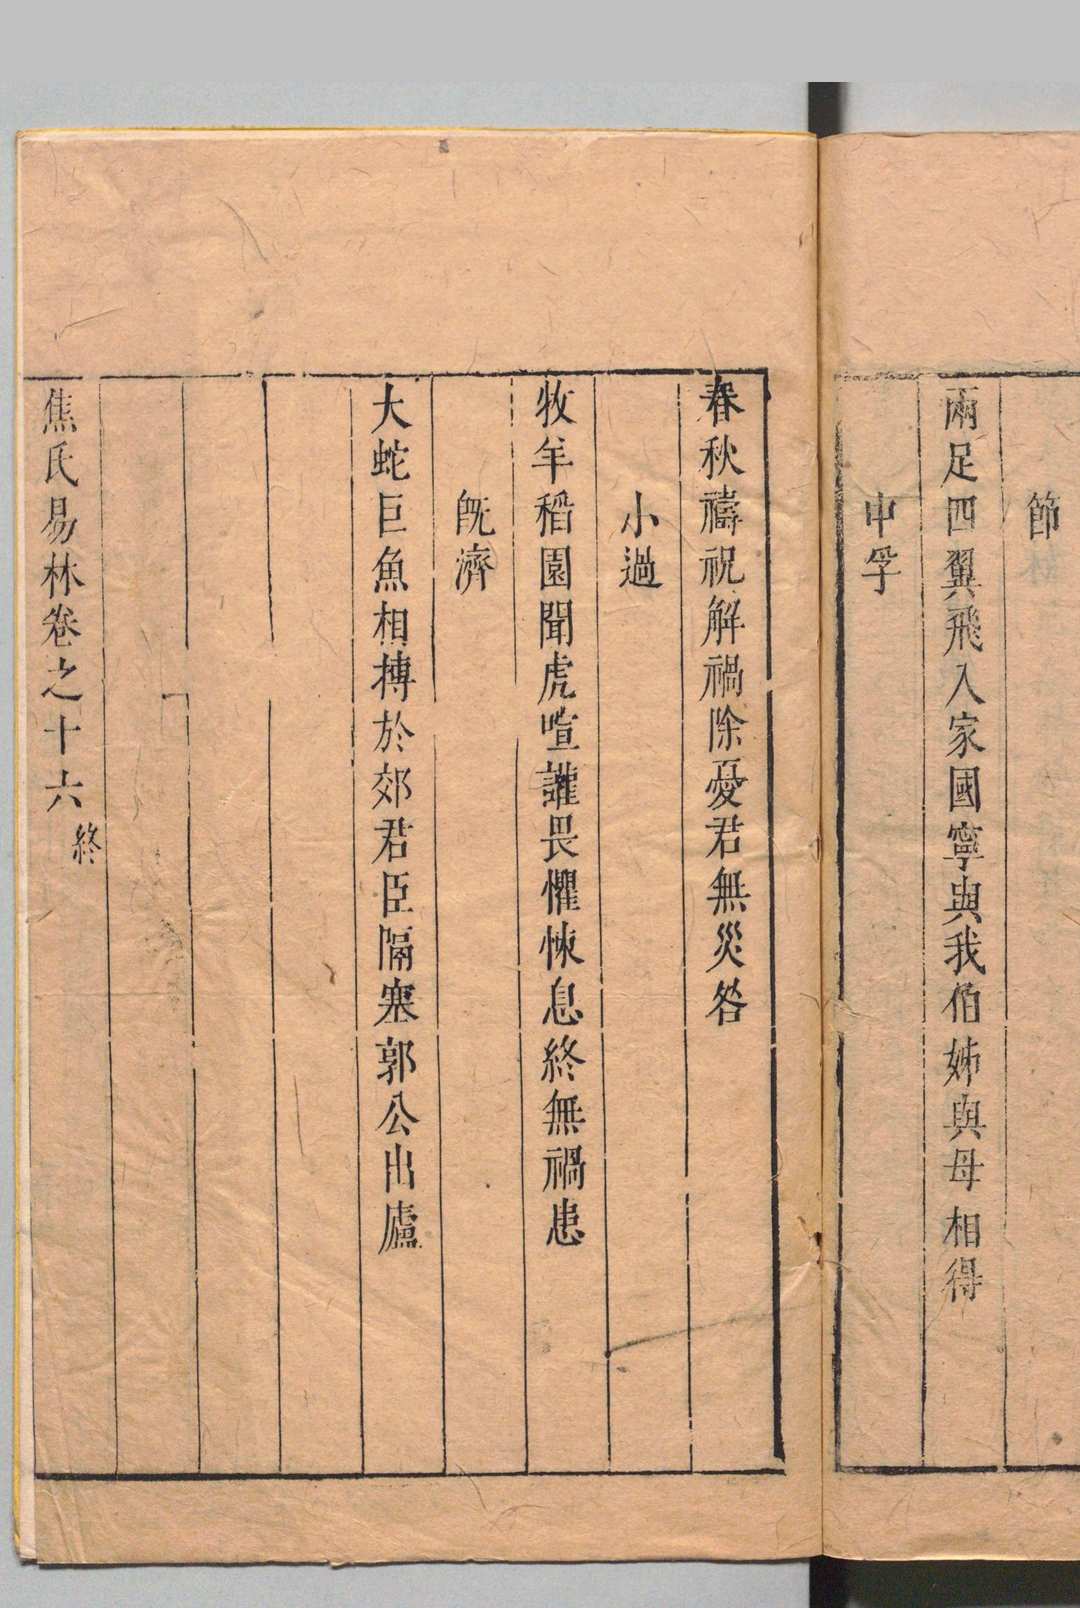 節
兩足四翼飛入家國寧與我伯姊與母相得
中孚
春秋禱祝解禍除憂君無災咎
小過
牧羊稻園聞虎喧讙畏懼悚息終無禍患
旣濟
大蛇巨魚相搏於郊君臣隔塞郭公出廬
焦氏易林卷之十六終